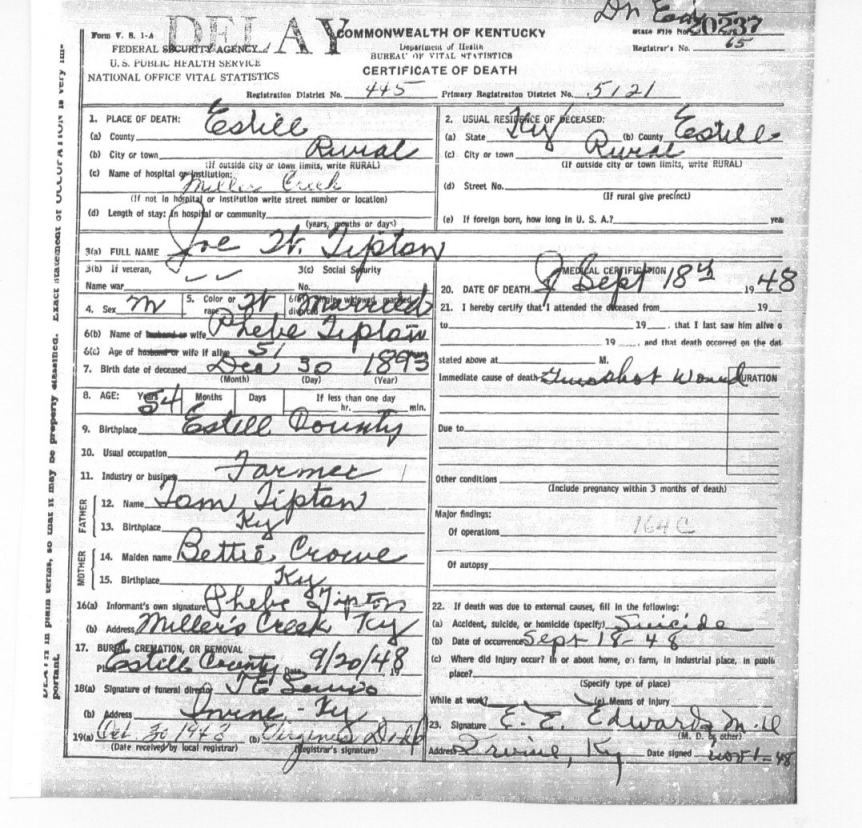 DELAY
Form V. S. 1-A
FEDERAL SECURITY AGENCY
U. S. PUBLIC HEALTH SERVICE
NATIONAL OFFICE VITAL STATISTICS
COMMONWEALTH OF KENTUCKY
Department of Health
BUREAU OF VITAL STATISTICS
CERTIFICATE OF DEATH
State File No. 20237
Registrar's No. 65
Registration District No. 445 Primary Registration District No. 5121
1. PLACE OF DEATH:
(a) County Estill
(b) City or town Rural
(If outside city or town limits, write RURAL)
(c) Name of hospital or institution:
Miller Creek
(If not in hospital or institution write street number or location)
(d) Length of stay: In hospital or community
(years, months or days)
2. USUAL RESIDENCE OF DECEASED:
(a) State Ky (b) County Estill
(c) City or town Rural
(If outside city or town limits, write RURAL)
(d) Street No.
(If rural give precinct)
(e) If foreign born, how long in U. S. A.? yea
3(a) FULL NAME Joe W. Tipton
3(b) If veteran,
Name war
3(c) Social Security
No.
4. Sex M 5. Color or race W Married
6(b) Name of husband or wife Phebe Tipton
6(c) Age of husband or wife if alive 51
7. Birth date of deceased Dec 30 1893
(Month) (Day) (Year)
8. AGE: Years 54 Months Days If less than one day
hr. min.
9. Birthplace Estill County
10. Usual occupation
11. Industry or business Farmer
FATHER
12. Name Tom Tipton
13. Birthplace Ky
MOTHER
14. Maiden name Bettie Crowe
15. Birthplace Ky
16(a) Informant's own signature Phebe Tipton
(b) Address Miller's Creek Ky
17. BURIAL, CREMATION, OR REMOVAL
Place Estill County Date 9/20/48 19
18(a) Signature of funeral director
(b) Address Irvine - Ky
19(a) Oct. 30 1948 (b) Virginia
(Date received by local registrar) (Registrar's signature)
MEDICAL CERTIFICATION
20. DATE OF DEATH Sept 18th 1948
21. I hereby certify that I attended the deceased from 19
to 19 , that I last saw him alive o
19 , and that death occurred on the dat
stated above at M.
Immediate cause of death Gunshot Wound DURATION
Due to
Other conditions
(Include pregnancy within 3 months of death)
Major findings:
Of operations 164C
Of autopsy
22. If death was due to external causes, fill in the following:
(a) Accident, suicide, or homicide (specify) Suicide
(b) Date of occurrence Sept 18-48
(c) Where did injury occur? In or about home, on farm, in industrial place, in public
place?
(Specify type of place)
While at work? (e) Means of injury
23. Signature E. E. Edwards M.D
(M. D. or other)
Address Irvine, Ky Date signed Nov 1-48
DEATH in plain terms, so that it may be properly classified. Exact statement of OCCUPATION is very im-
portant.